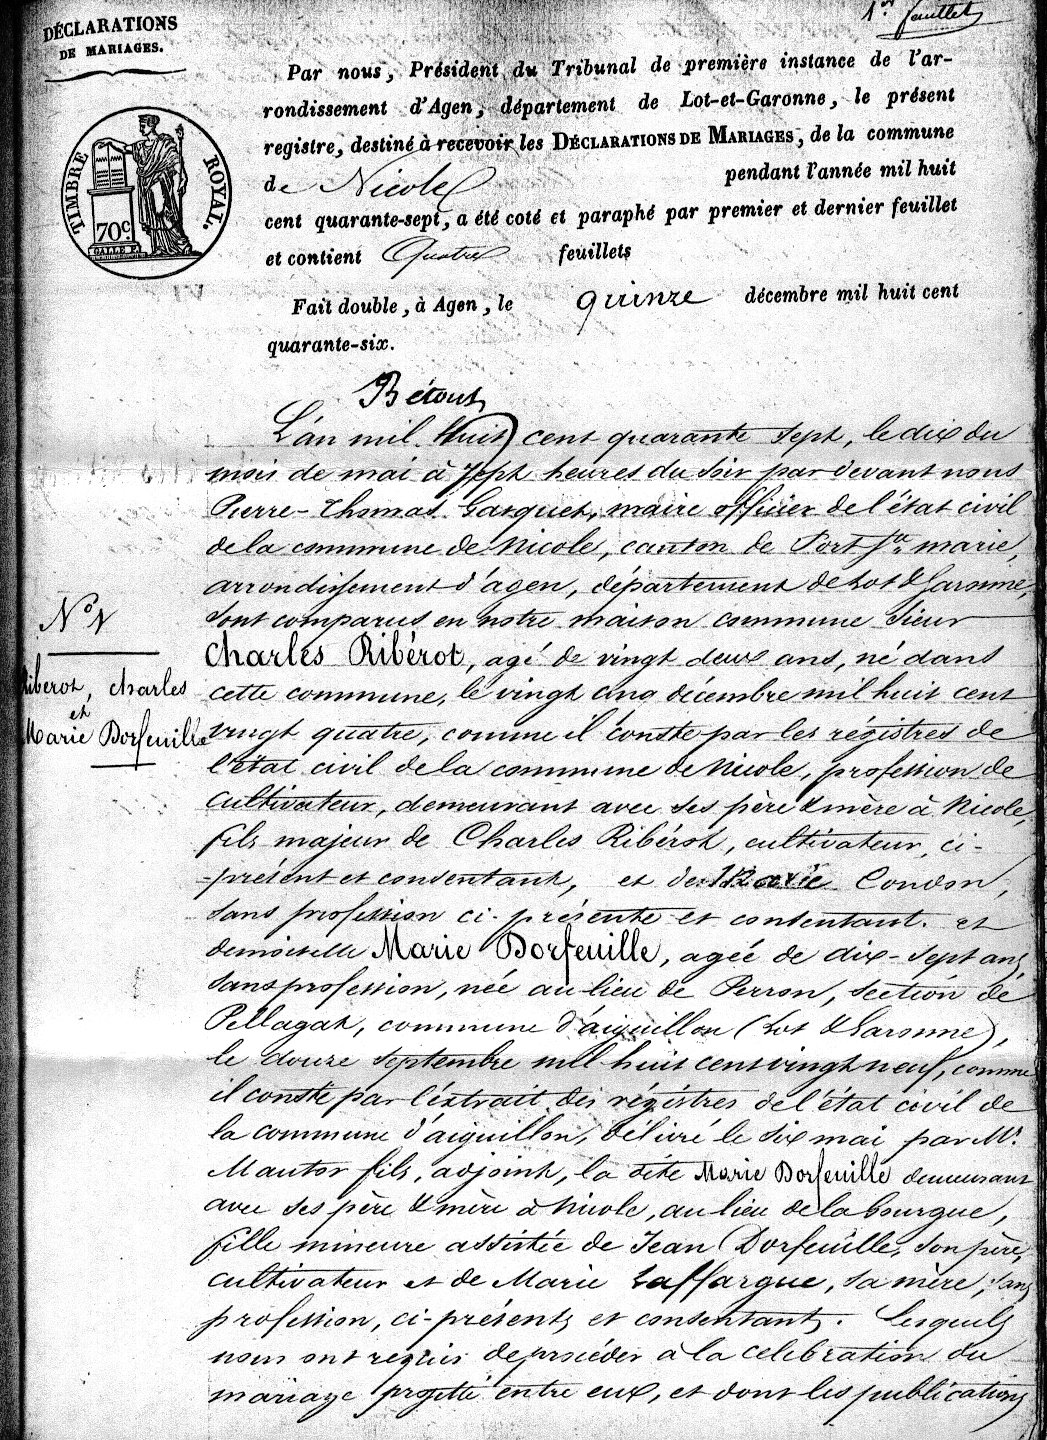 DÉCLARATIONS
DE MARIAGES.
1er feuillet
TIMBRE ROYAL.
70c.
Par nous, Président du Tribunal de première instance de l'ar-
rondissement d'Agen, département de Lot-et-Garonne, le présent
registre, destiné à recevoir les DÉCLARATIONS DE MARIAGES, de la commune
de Nicole pendant l'année mil huit
cent quarante-sept, a été coté et paraphé par premier et dernier feuillet
et contient Quatre feuillets
Fait double, à Agen, le quinze décembre mil huit cent
quarante-six.
Bétout
L'an mil huit cent quarante sept, le dix du
mois de mai à sept heures du soir par devant nous
Pierre-Thomas Gasquet, maire officier de l'état civil
de la commune de Nicole, canton de Port Ste marie,
arrondissement d'agen, département de Lot & Garonne,
sont comparus en notre maison commune sieur
Charles Ribérot, agé de vingt deux ans, né dans
cette commune, le vingt cinq décembre mil huit cent
vingt quatre, comme il conste par les régistres de
l'état civil de la commune de Nicole, profession de
cultivateur, demeurant avec ses père & mère à Nicole,
fils majeur de Charles Ribérot, cultivateur, ci-
-présent et consentant, et de Marie Condon,
sans profession ci-présente et consentant. et
demoiselle Marie Dorfeuille, agée de dix-sept ans,
sans profession, née au lieu de Perron, section de
Pellagat, commune d'aiguillon (Lot & Garonne),
le douze septembre mil huit cent vingt neuf, comme
il conste par l'éxtrait des régistres de l'état civil de
la commune d'aiguillon, délivré le six mai par Mr.
Mautor fils, adjoint, la dite Marie Dorfeuille demeurant
avec ses père & mère à Nicole, au lieu de la bourgue,
fille mineure assistée de Jean Dorfeuille, son père,
cultivateur et de Marie Laffargue, sa mère, sans
profession, ci-présents et consentants. Lesquels
nous ont requis de procéder à la célébration du
mariage projetté entre eux, et dont les publications
No 1
Riberot, Charles
et
Marie Dorfeuille